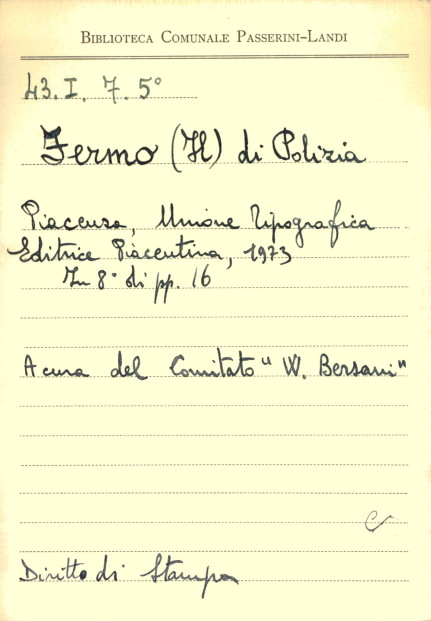 BIBLIOTECA COMUNALE PASSERINI-LANDI
43.I. 7. 5°
Fermo (Il) di Polizia
Piacenza, Unione Tipografica
Editrice Piacentina, 1973
In 8° di pp. 16
A cura del Comitato "W. Bersani"
C
Diritto di Stampa